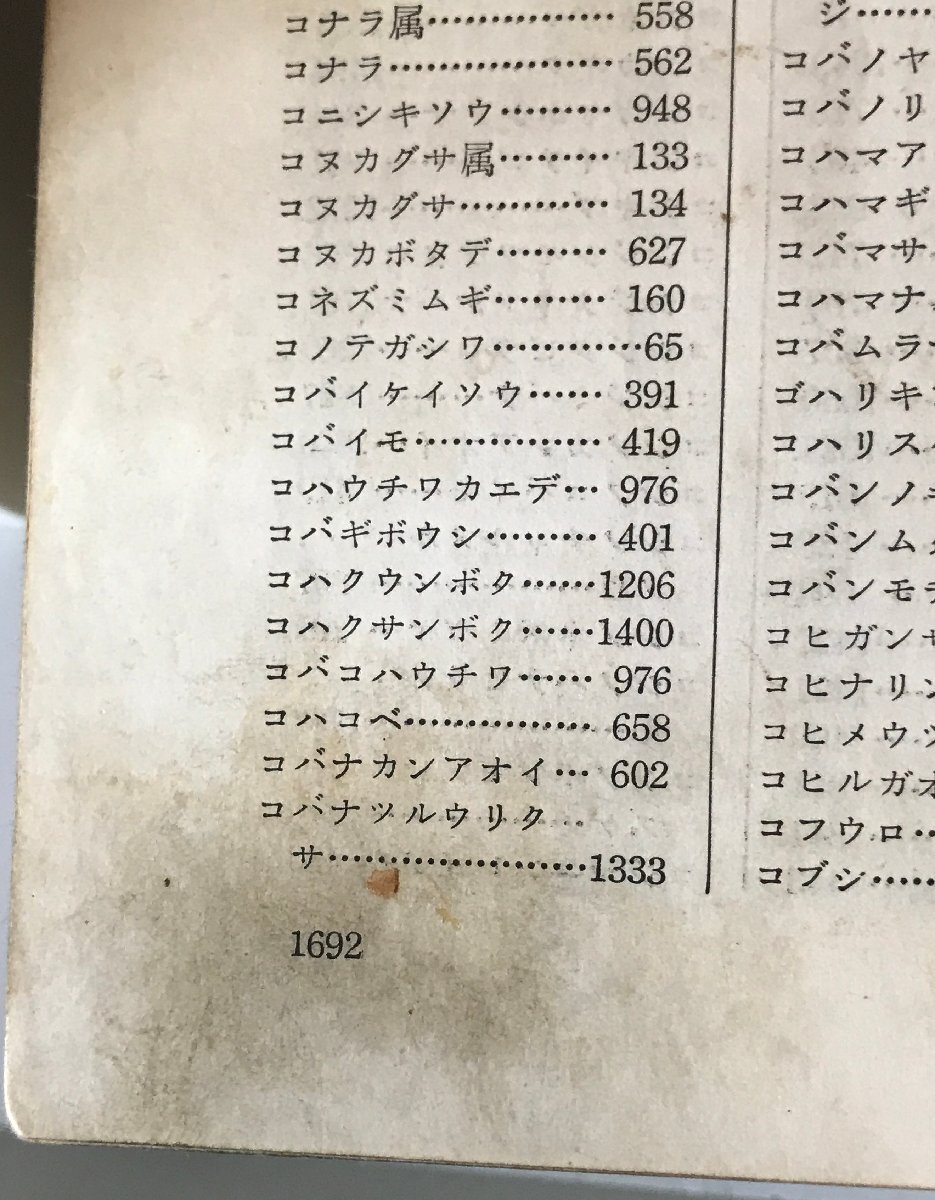 コナラ属…………… 558
コナラ……………… 562
コニシキソウ……… 948
コヌカグサ属……… 133
コヌカグサ………… 134
コヌカボタデ……… 627
コネズミムギ……… 160
コノテガシワ…………65
コバイケイソウ…… 391
コバイモ…………… 419
コハウチワカエデ… 976
コバギボウシ……… 401
コハクウンボク……1206
コハクサンボク……1400
コバコハウチワ…… 976
コハコベ…………… 658
コバナカンアオイ… 602
コバナツルウリク
サ……………………1333
1692
ジ……
コバノヤ
コバノリ
コハマア
コハマギ
コバマサ
コハマナ
コバムラ
ゴハリキ
コハリス
コバンノ
コバンム
コバンモ
コヒガン
コヒナリ
コヒメウ
コヒルガ
コフウロ…
コブシ……